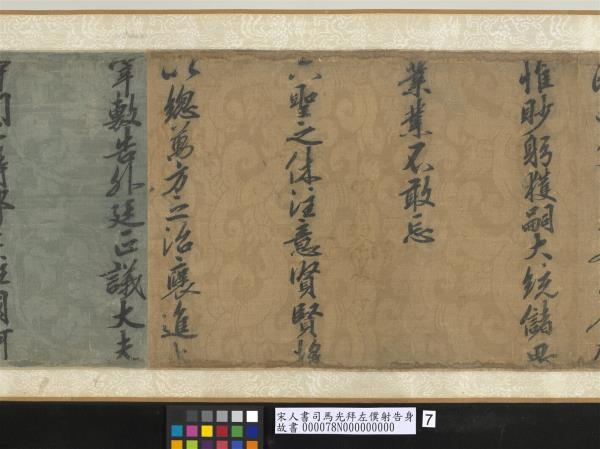 惟眇躬獲嗣大統儲思
業業不敢忘
六聖之休注意賢賢將
以總萬方之治襃進上
宰敷告外廷正議大夫
守門下侍郎上柱國河
宋人書司馬光拜左僕射告身
故書 000078N000000000
7